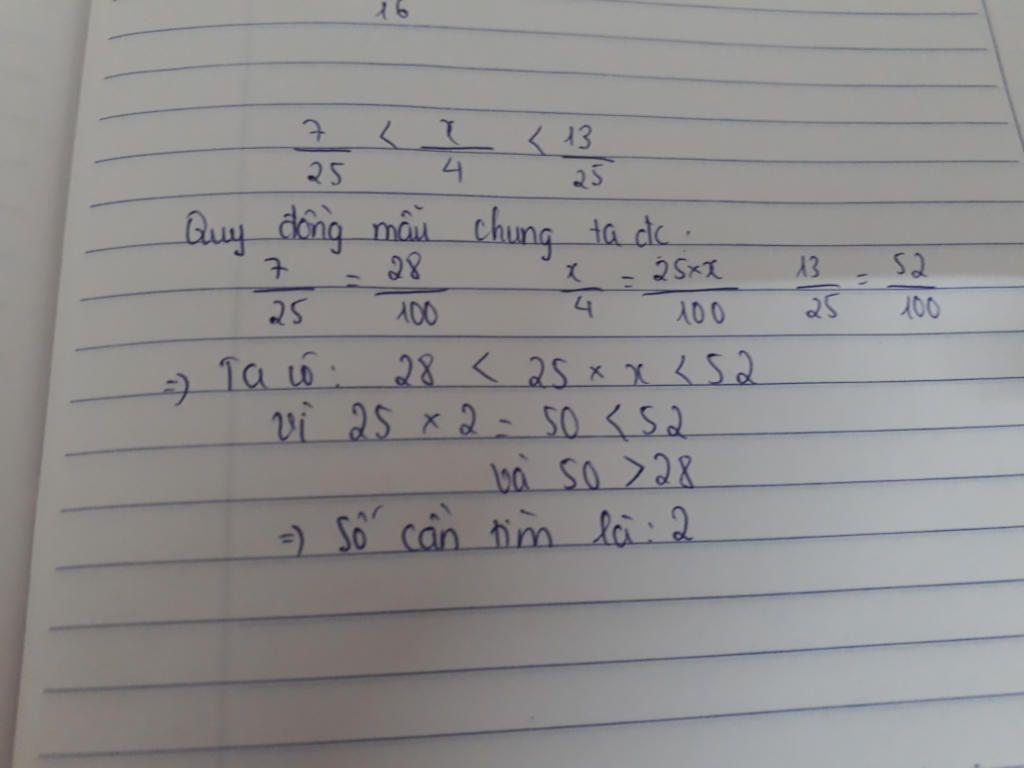 16
7/25 < x/4 < 13/25
Quy đồng mẫu chung ta đc.
7/25 = 28/100 x/4 = 25×x/100 13/25 = 52/100
=> Ta có: 28 < 25 × x < 52
vì 25 × 2 = 50 < 52
và 50 > 28
=> Số cần tìm là: 2